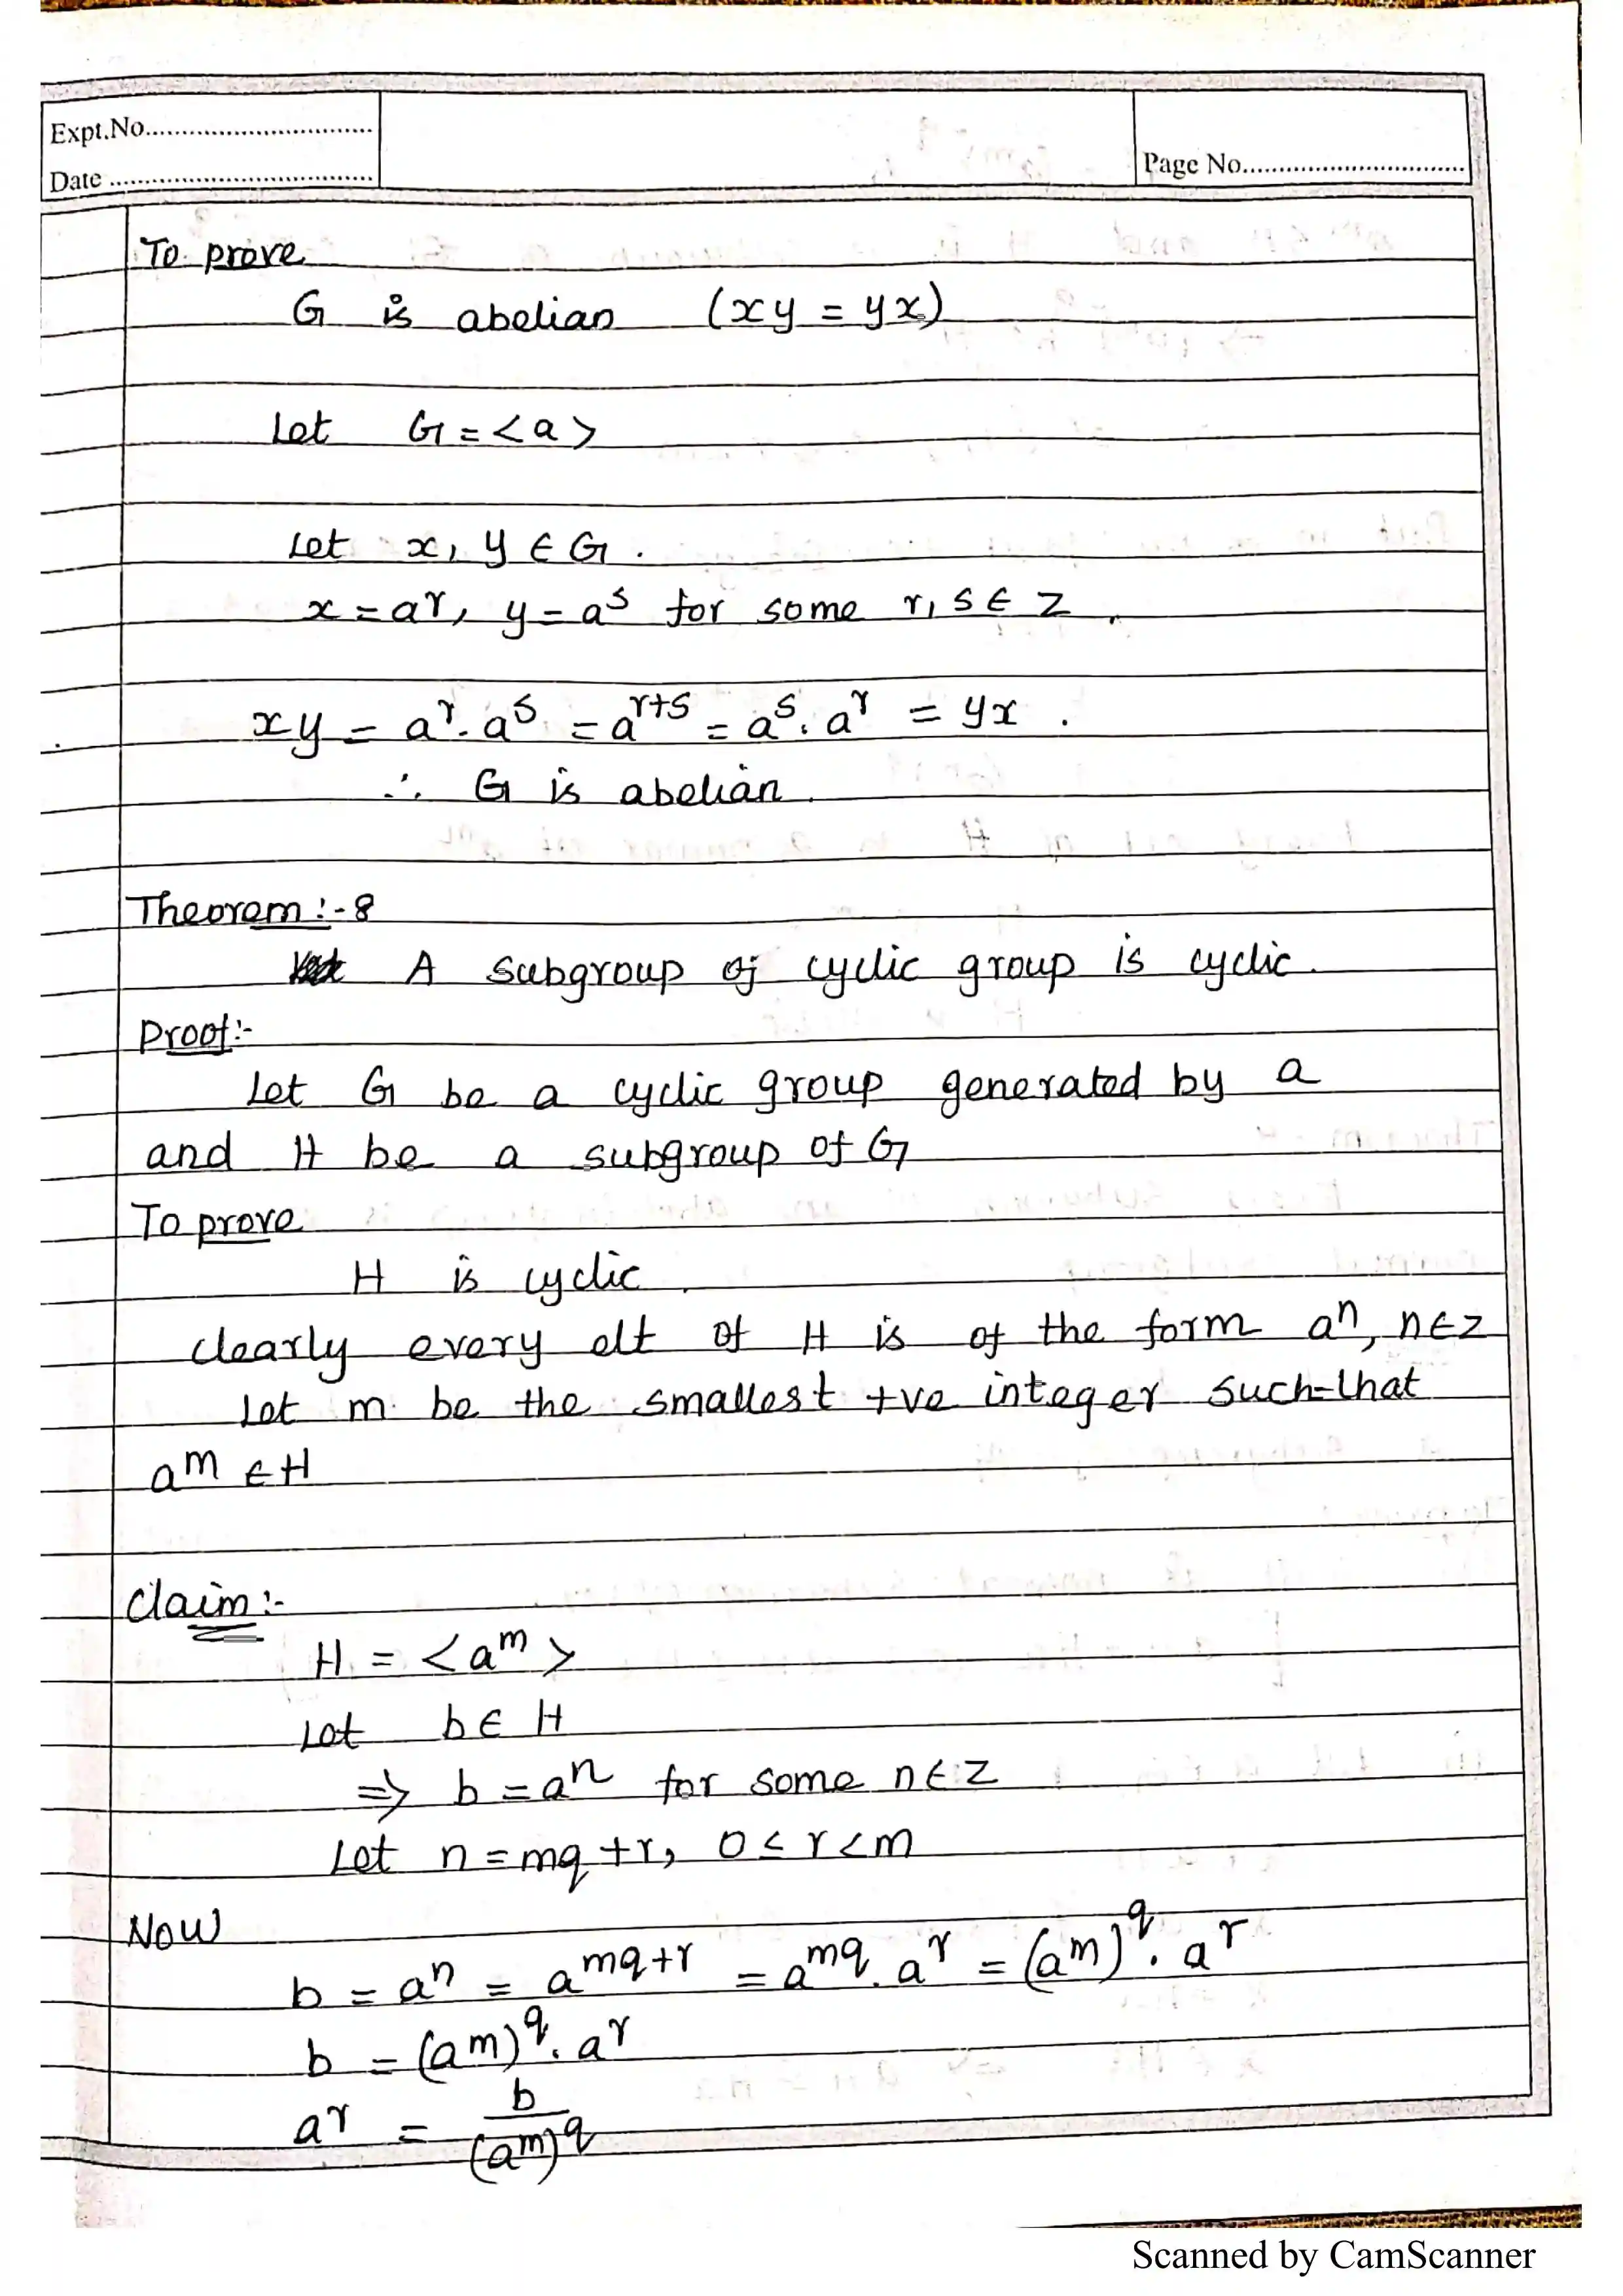 Expt.No..............................
Date ..................................
Page No..............................
To prove
G is abelian (xy = yx)
Let G = <a>
Let x, y ∈ G .
x = a^r, y = a^s for some r, s ∈ Z .
xy = a^r . a^s = a^{r+s} = a^s . a^r = yx .
∴ G is abelian .
Theorem :- 8
A subgroup of cyclic group is cyclic .
Proof :-
Let G be a cyclic group generated by a
and H be a subgroup of G
To prove
H is cyclic .
clearly every elt of H is of the form a^n, n∈Z
Let m be the smallest +ve integer such-that
a^m ∈ H
Claim :-
H = <a^m>
Let b ∈ H
⇒ b = a^n for some n ∈ Z
Let n = mq + r, 0 ≤ r < m
Now
b = a^n = a^{mq+r} = a^{mq} . a^r = (a^m)^q . a^r
b = (a^m)^q . a^r
a^r = b / (a^m)^q
Scanned by CamScanner